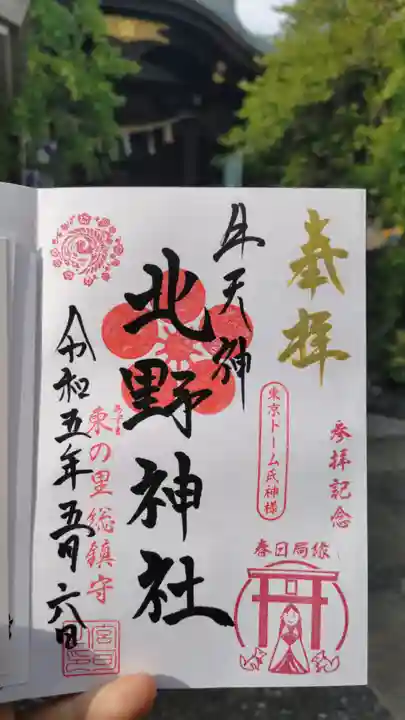 奉拝
参拝記念
東京ドーム氏神様
春日局縁
牛天神
北野神社
東の里総鎮守
令和五年五月六日